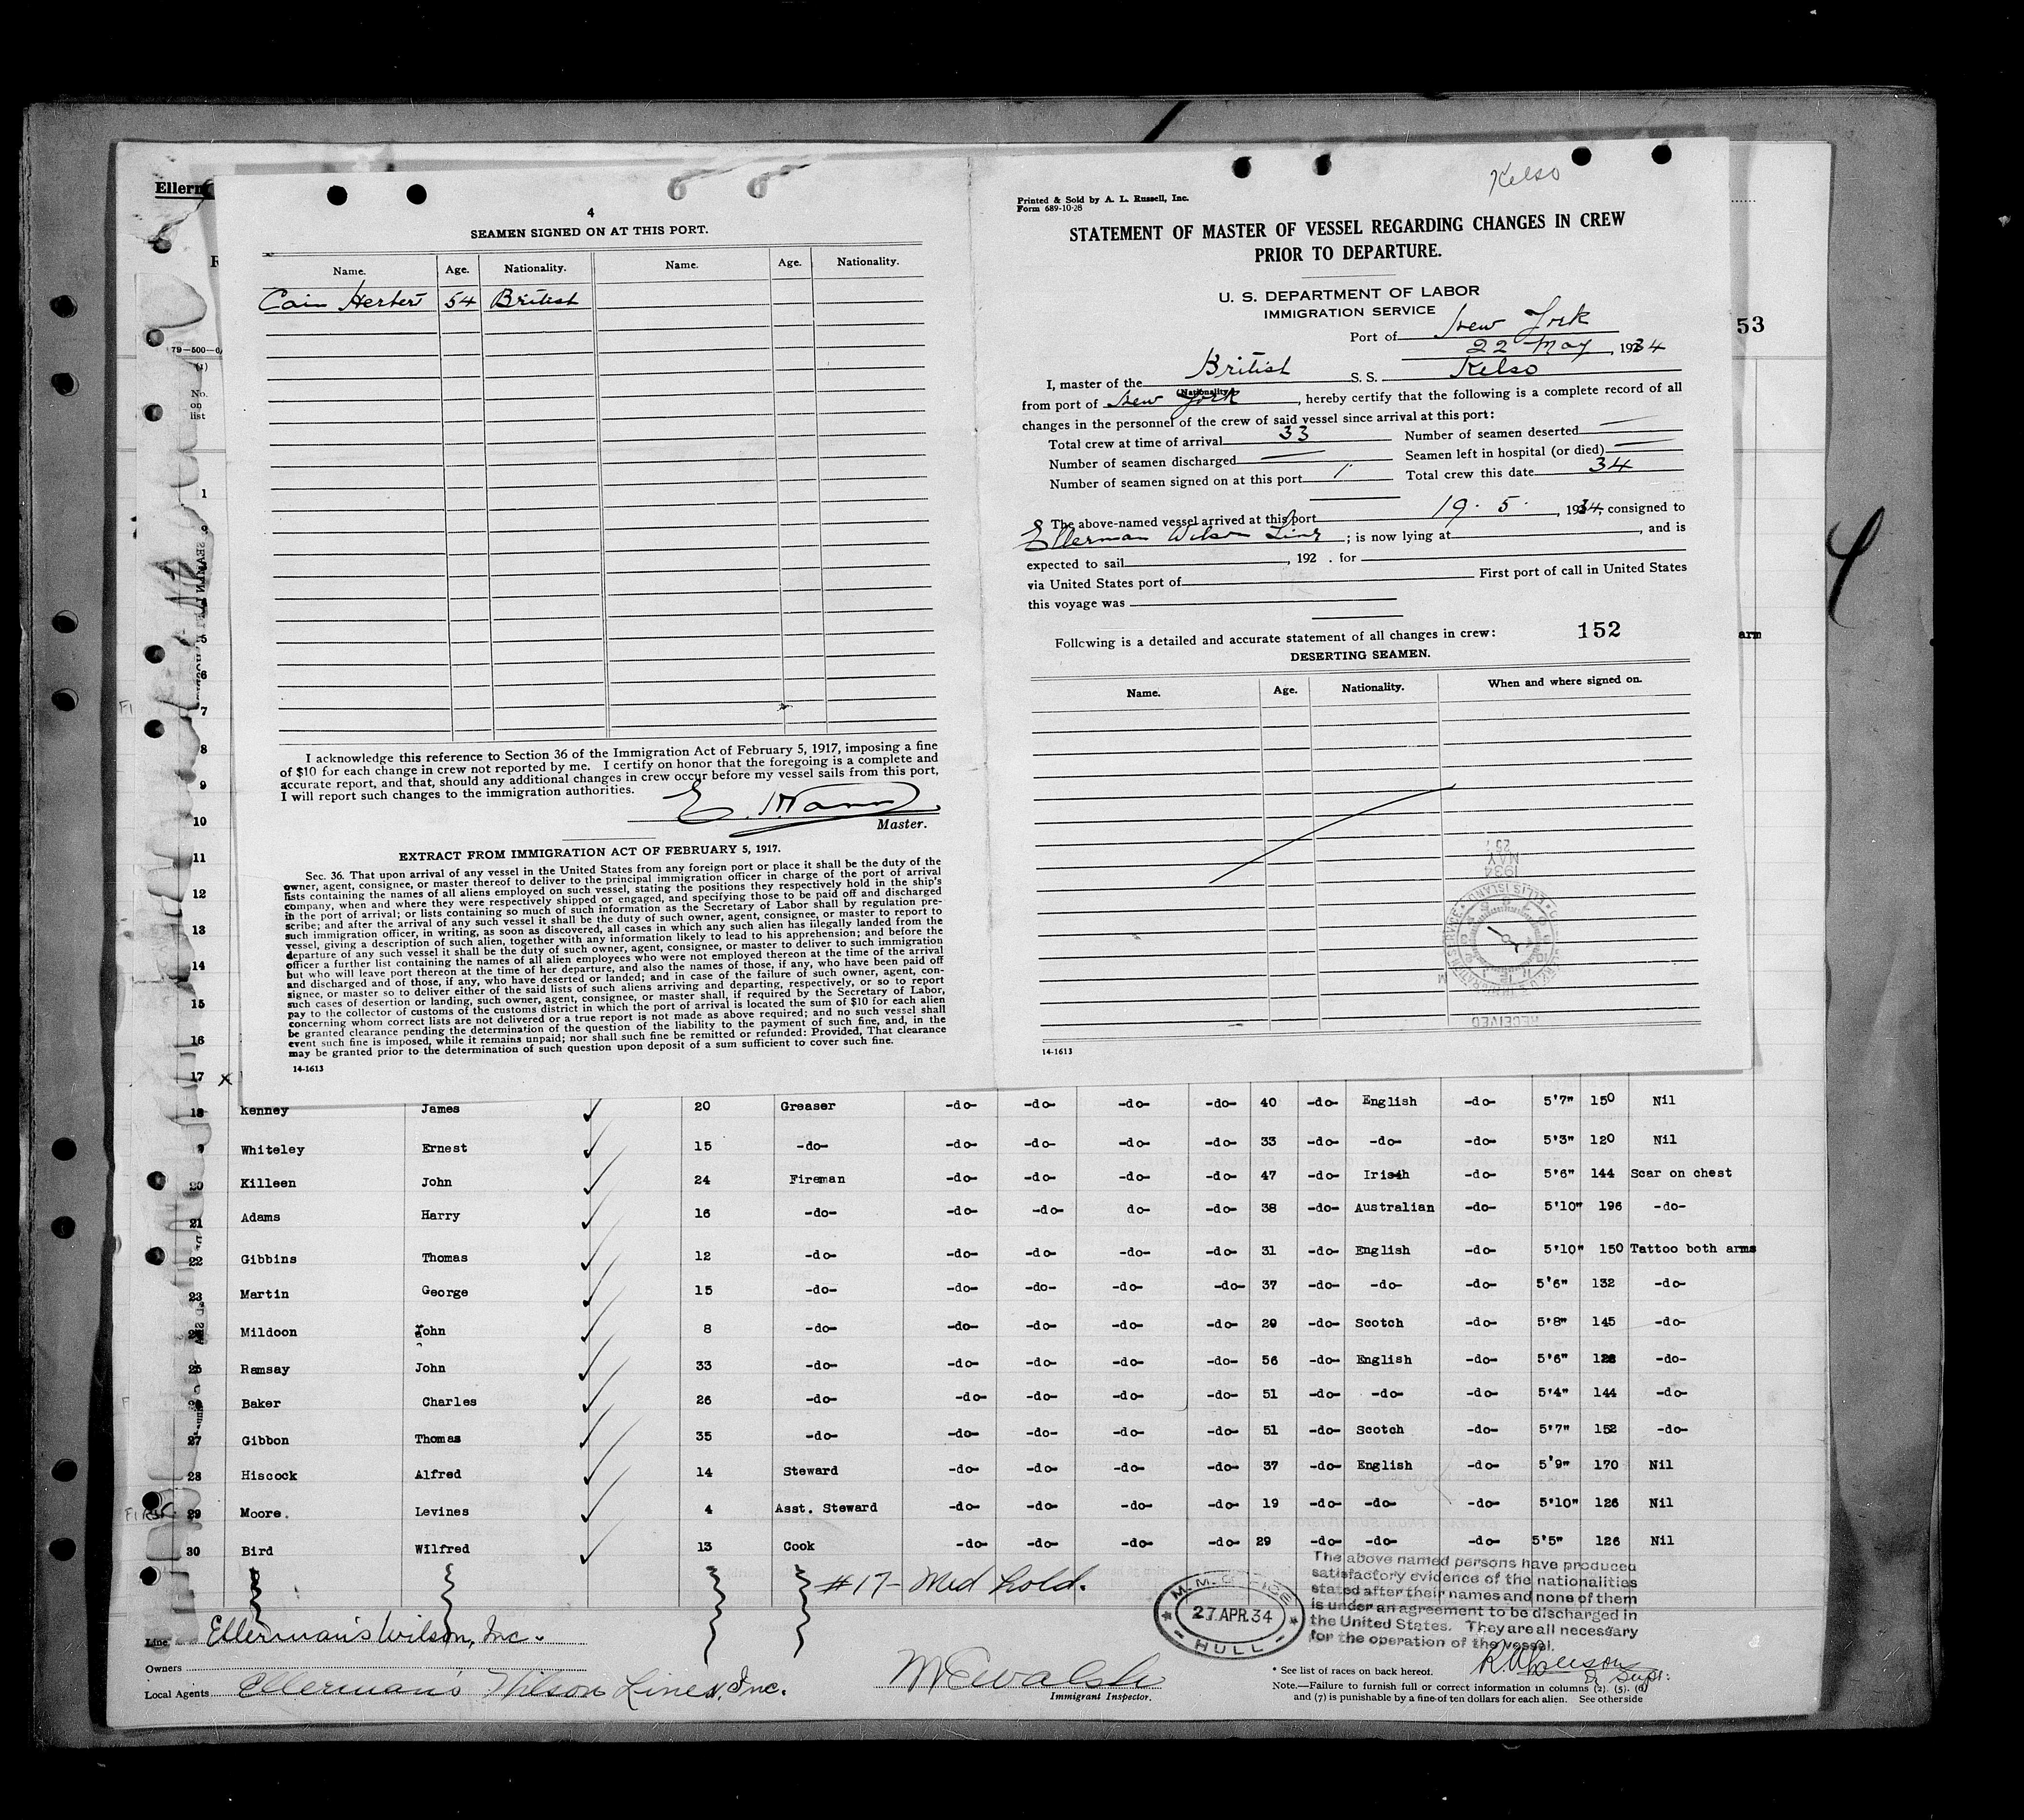 Kelso
4
SEAMEN SIGNED ON AT THIS PORT.
Name. Age. Nationality. Name. Age. Nationality.
Cain Herbert 54 British
I acknowledge this reference to Section 36 of the Immigration Act of February 5, 1917, imposing a fine
of $10 for each change in crew not reported by me. I certify on honor that the foregoing is a complete and
accurate report, and that, should any additional changes in crew occur before my vessel sails from this port,
I will report such changes to the immigration authorities.
Master.
EXTRACT FROM IMMIGRATION ACT OF FEBRUARY 5, 1917.
Sec. 36. That upon arrival of any vessel in the United States from any foreign port or place it shall be the duty of the
owner, agent, consignee, or master thereof to deliver to the principal immigration officer in charge of the port of arrival
lists containing the names of all aliens employed on such vessel, stating the positions they respectively hold in the ship's
company, when and where they were respectively shipped or engaged, and specifying those to be paid off and discharged
in the port of arrival; or lists containing so much of such information as the Secretary of Labor shall by regulation pre-
scribe; and after the arrival of any such vessel it shall be the duty of such owner, agent, consignee, or master to report to
such immigration officer, in writing, as soon as discovered, all cases in which any such alien has illegally landed from the
vessel, giving a description of such alien, together with any information likely to lead to his apprehension; and before the
departure of any such vessel it shall be the duty of such owner, agent, consignee, or master to deliver to such immigration
officer a further list containing the names of all alien employees who were not employed thereon at the time of the arrival
but who will leave port thereon at the time of her departure, and also the names of those, if any, who have been paid off
and discharged and of those, if any, who have deserted or landed; and in case of the failure of such owner, agent, con-
signee, or master so to deliver either of the said lists of such aliens arriving and departing, respectively, or so to report
such cases of desertion or landing, such owner, agent, consignee, or master shall, if required by the Secretary of Labor,
pay to the collector of customs of the customs district in which the port of arrival is located the sum of $10 for each alien
concerning whom correct lists are not delivered or a true report is not made as above required; and no such vessel shall
be granted clearance pending the determination of the question of the liability to the payment of such fine, and, in the
event such fine is imposed, while it remains unpaid; nor shall such fine be remitted or refunded: Provided, That clearance
may be granted prior to the determination of such question upon deposit of a sum sufficient to cover such fine.
14-1613
Printed & Sold by A. L. Russell, Inc.
Form 689-10-28
STATEMENT OF MASTER OF VESSEL REGARDING CHANGES IN CREW
PRIOR TO DEPARTURE.
U. S. DEPARTMENT OF LABOR
IMMIGRATION SERVICE
Port of New York
22 May, 1934
I, master of the British S. S. Kelso
(Nationality)
from port of New York, hereby certify that the following is a complete record of all
changes in the personnel of the crew of said vessel since arrival at this port:
Total crew at time of arrival 33 Number of seamen deserted —
Number of seamen discharged — Seamen left in hospital (or died) —
Number of seamen signed on at this port 1 Total crew this date 34
The above-named vessel arrived at this port 19. 5. , 1934, consigned to
Ellerman Wilson Line ; is now lying at , and is
expected to sail , 192 . for
via United States port of First port of call in United States
this voyage was
Following is a detailed and accurate statement of all changes in crew: 152
DESERTING SEAMEN.
Name. Age. Nationality. When and where signed on.
1934
MAY
25
ELLIS ISLAND
RECEIVED
14-1613
Ellerm
79-500-6
(1)
No.
on
list
53
4
arm
1
5
6
7
8
9
10
11
12
13
14
15
16
17 x
18 Kenney James 20 Greaser -do- -do- -do- -do- 40 -do- English -do- 5'7" 150 Nil
9 Whiteley Ernest 15 -do- -do- -do- -do- -do- 33 -do- -do- -do- 5'3" 120 Nil
20 Killeen John 24 Fireman -do- -do- -do- -do- 47 -do- Irish -do- 5'6" 144 Scar on chest
21 Adams Harry 16 -do- -do- -do- do- -do- 38 -do- Australian -do- 5'10" 196 -do-
22 Gibbins Thomas 12 -do- -do- -do- -do- -do- 31 -do- English -do- 5'10" 150 Tattoo both arms
23 Martin George 15 -do- -do- -do- -do- -do- 37 -do- -do- -do- 5'6" 132 -do-
Mildoon John 8 -do- -do- -do- -do- -do- 29 -do- Scotch -do- 5'8" 145 -do-
25 Ramsay John 33 -do- -do- -do- -do- -do- 56 -do- English -do- 5'6" 128 -do-
Baker Charles 26 -do- -do- -do- -do- 51 -do- -do- -do- 5'4" 144 -do-
27 Gibbon Thomas 35 -do- -do- -do- -do- -do- 51 -do- Scotch -do- 5'7" 152 -do-
28 Hiscock Alfred 14 Steward -do- -do- -do- -do- 37 -do- English -do- 5'9" 170 Nil
29 Moore. Levines 4 Asst. Steward -do- -do- -do- -do- 19 -do- -do- -do- 5'10" 126 Nil
30 Bird Wilfred 13 Cook -do- -do- -do- -do- 29 -do- -do- -do- 5'5" 126 Nil
#17- Med hold.
M.M. OFFICE
27 APR. 34
HULL
The above named persons have produced
satisfactory evidence of the nationalities
stated after their names and none of them
is under an agreement to be discharged in
the United States. They are all necessary
for the operation of the vessel.
Line Ellerman's Wilson, Inc.
Owners
Local Agents Ellerman's Wilson Line, Inc.
Immigrant Inspector.
* See list of races on back hereof.
Note.—Failure to furnish full or correct information in columns (2), (5), (6)
and (7) is punishable by a fine of ten dollars for each alien. See other side